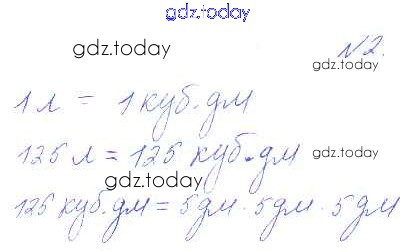 gdz.today
gdz.today
№2.
gdz.today
1 л = 1 куб.дм
125 л = 125 куб.дм
gdz.today
gdz.today
125 куб.дм = 5дм · 5дм · 5дм